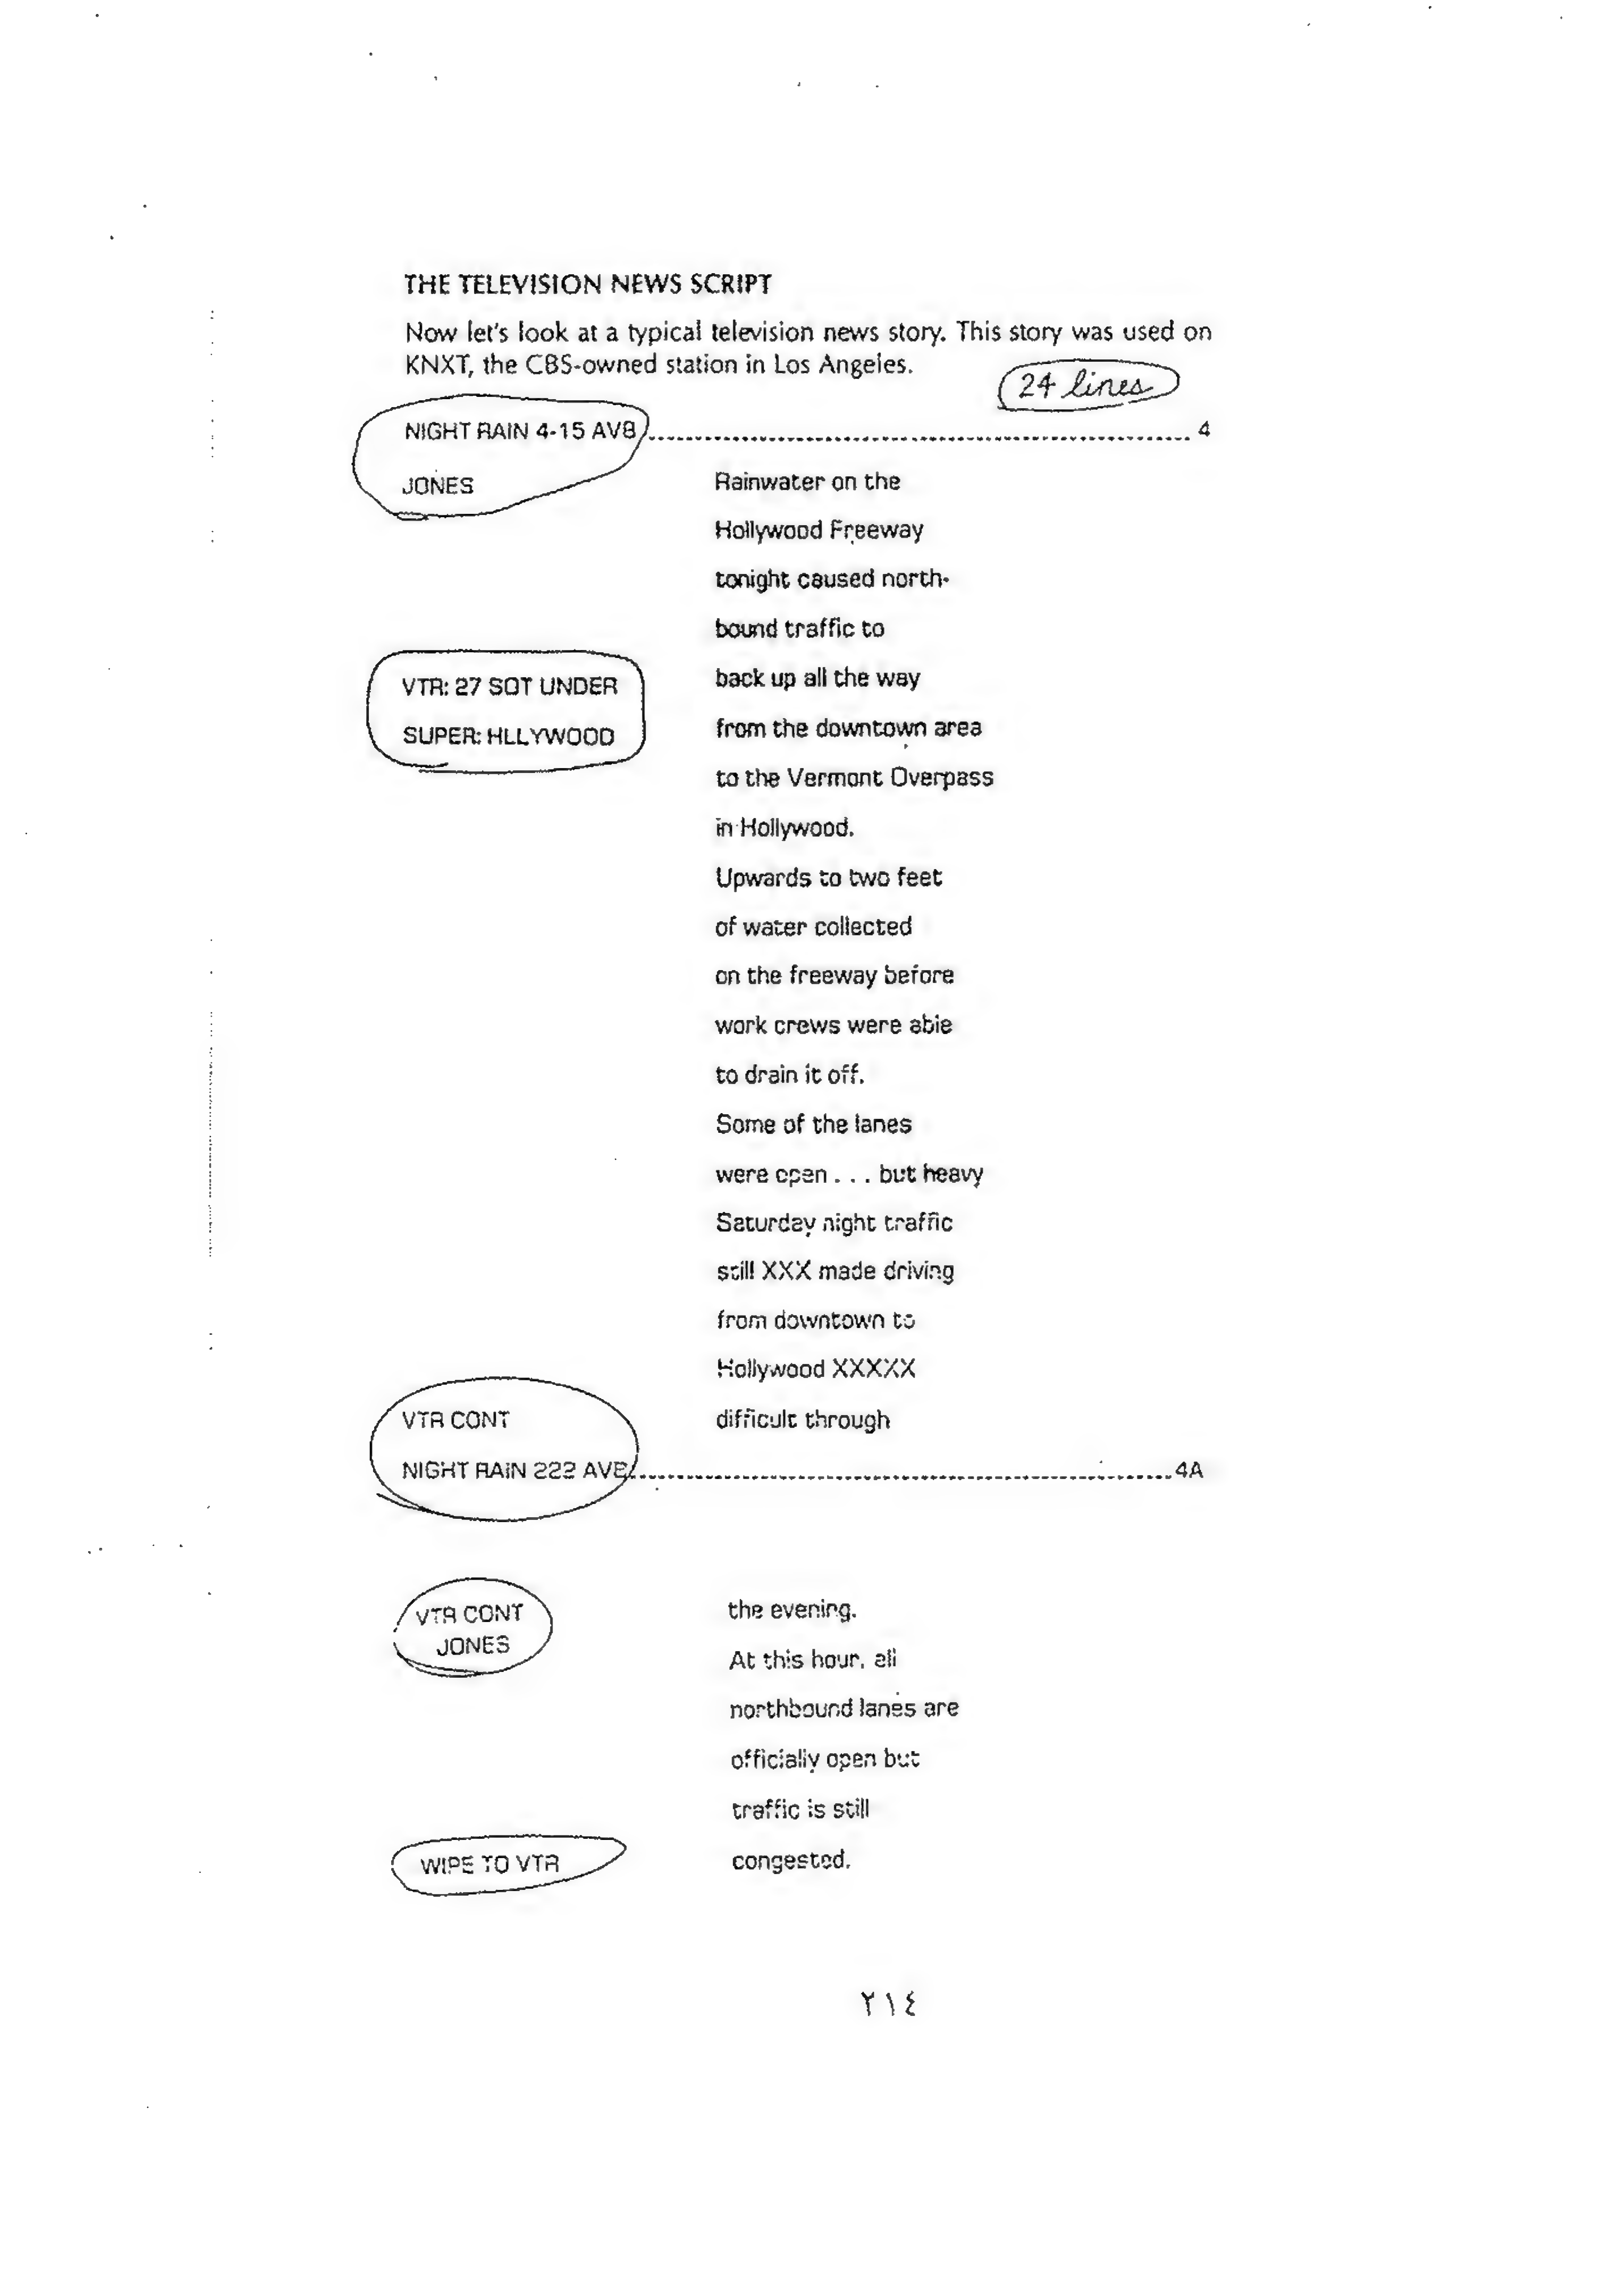 THE TELEVISION NEWS SCRIPT
Now let's look at a typical television news story. This story was used on
KNXT, the CBS-owned station in Los Angeles.
24 lines
NIGHT RAIN 4-15 AVB 4
JONES Rainwater on the
Hollywood Freeway
tonight caused north-
bound traffic to
VTR: 27 SOT UNDER back up all the way
SUPER: HLLYWOOD from the downtown area
to the Vermont Overpass
in Hollywood.
Upwards to two feet
of water collected
on the freeway before
work crews were able
to drain it off.
Some of the lanes
were open . . . but heavy
Saturday night traffic
still XXX made driving
from downtown to
Hollywood XXXXX
VTR CONT difficult through
NIGHT RAIN 222 AVE 4A
VTR CONT the evening.
JONES
At this hour, all
northbound lanes are
officially open but
traffic is still
WIPE TO VTR congested.
٢١٤